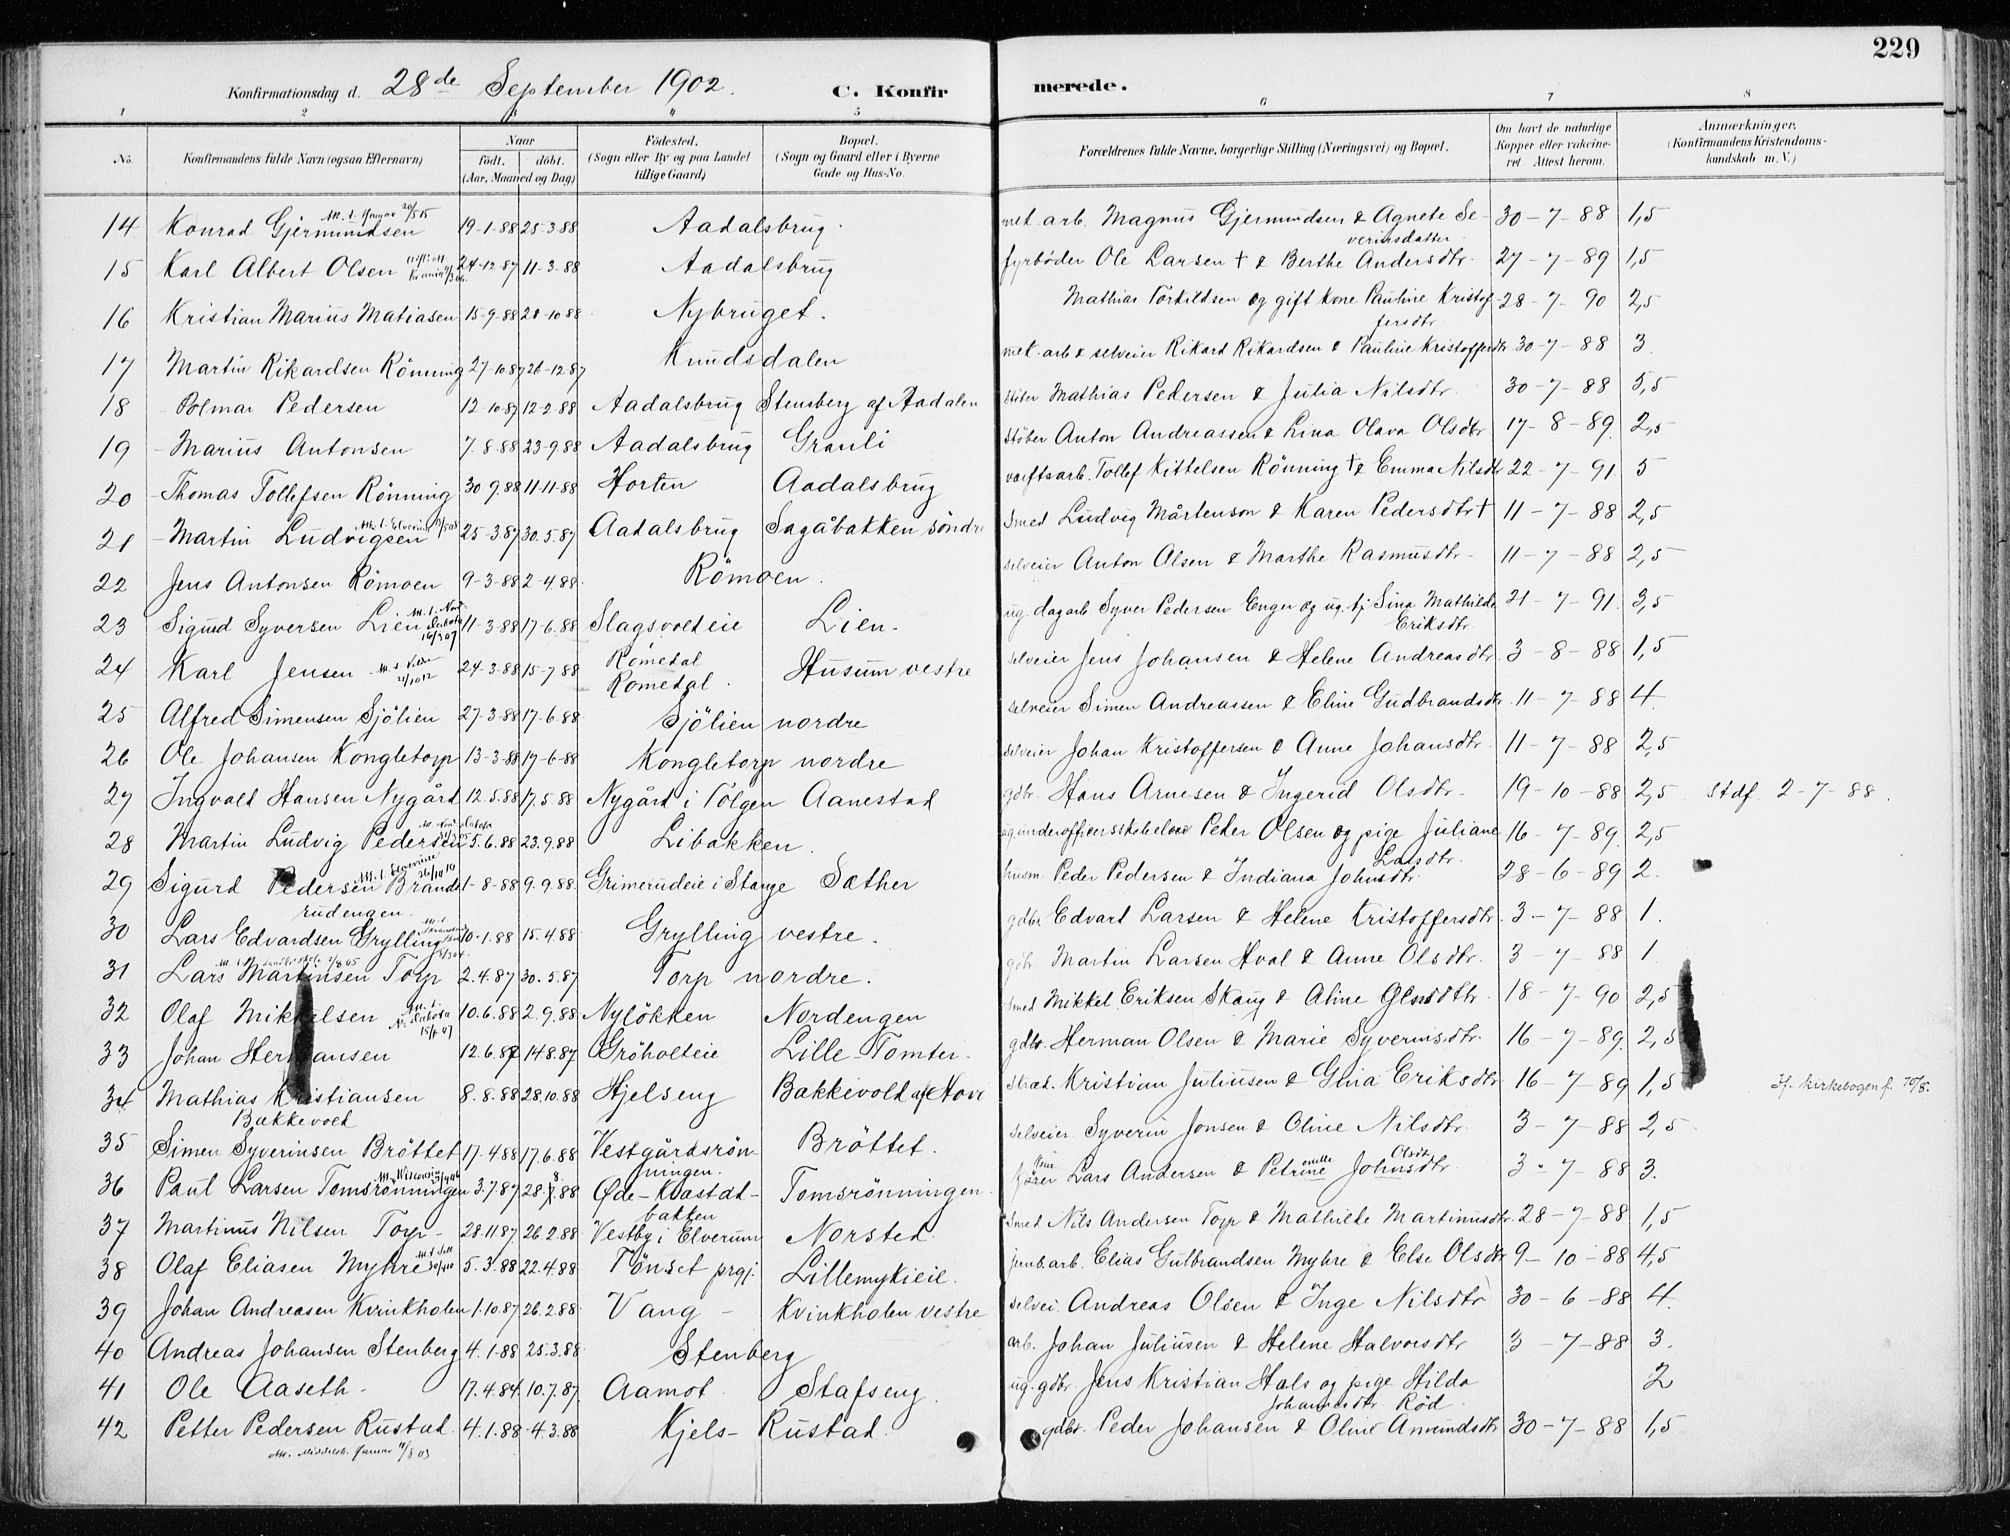 229
Konfirmationsdag d. 28de September 1902. C. Konfirmerede.
1 2 3 4 5 6 7 8
No. Konfirmandens fulde Navn (ogsaa Efternavn) Naar födt. döbt. (Aar, Maaned og Dag) Födested. (Sogn eller By og paa Landet tillige Gaard) Bopæl. (Sogn og Gaard eller i Byerne Gade og Hus-No. Forældrenes fulde Navne, borgerlige Stilling (Næringsvei) og Bopæl. Om havt de naturlige Kopper eller vakcineret. Attest herom. Anmærkninger. (Konfirmandens Kristendomskundskab m. V.)
14 Konrad Gjermundsen 19-1-88 25-3-88 Aadalsbrug mek. arb. Magnus Gjermundsen & Agnete Severinsdatter 30-7-88 1,5
15 Karl Albert Olsen 24-12-87 11-3-88 Aadalsbrug fyrbøder Ole Larsen † & Berthe Andersdtr. 27-7-89 1,5
16 Kristian Marius Matiasen 15-9-88 28-10-88 Nybruget. Mathias Torkildsen og gift kone Pauline Kristoffersdtr. 28-7-90 2,5
17 Martin Rikardsen Rönning 27-10-87 26-12-87 Knudsdalen mek. arb & selveier Rikard Rikardsen & Pauline Kristoffersdtr 30-7-88 3
18 Polmar Pedersen 12-10-87 12-2-88 Aadalsbrug Stensberg af Aadalen støber Mathias Pedersen & Julia Nilsdtr. 30-7-88 5,5
19 Marius Antonsen 7-8-88 23-9-88 Aadalsbrug Granli Støber Anton Andreassen & Lina Olava Olsdtr 17-8-89 2,5
20 Thomas Tollefsen Rönning 30-9-88 11-11-88 Horten Aadalsbrug værftsarb. Tollef Kittelsen Rönning † & Emma Nilsdtr 22-7-91 5
21 Martin Ludvigsen 25-3-87 30-5-87 Aadalsbrug Sagåbakken söndre Smed Ludvig Mårtenson & Karen Pedersdtr † 11-7-88 2,5
22 Jens Antonsen Römoen 9-3-88 2-4-88 Römoen. selveier Anton Olsen & Marthe Rasmusdtr. 11-7-88 2,5
23 Sigurd Syversen Lien 11-3-88 17-6-88 Slagsvoldeie Lien. ug. dagarb Syver Pedersen Enger og ug. tj. Sina Mathilde Eriksdtr. 21-7-91 3,5
24 Karl Jensen 24-3-88 15-7-88 Romedal Romedal. Husum vestre selveier Jens Johansen & Helene Andreasdtr. 3-8-88 1,5
25 Alfred Simensen Sjölien 27-3-88 17-6-88 Sjölien nordre selveier Simen Andreassen & Eline Gudbrandsdtr. 11-7-88 4
26 Ole Johansen Kongletorp 13-3-88 17-6-88 Kongletorp nordre selveier Johan Kristoffersen & Anne Johansdtr. 11-7-88 2,5
27 Ingvald Hansen Nygård 12.5.88 17.5.88 Nygård i Tolgen Aanestad gdbr. Hans Arnesen & Ingerid Olsdtr. 19-10-88 2,5 Stdf. 2-7-88.
28 Martin Ludvig Pedersen 5.6.88 23.9.88 Libakken. ug. underofficersskoleelev Peder Olsen og pige Juliane Larsdtr. 16-7-89 2,5
29 Sigurd Pedersen Brandsrudengen. 1-8-88 9.9.88 Grimerudeie i Stange Sæther husm. Peder Pedersen & Indiana Johnsdtr. 28-6-89 2.
30 Lars Edvardsen Grylling 10-1.88 15.4.88 Grylling vestre. gdbr Edvard Larsen & Helene Kristoffersdtr. 3-7-88 1.
31 Lars Martinsen Torp 2.4.87 30.5.87 Torp nordre. gdbr. Martin Larsen Hval & Anne Olsdtr. 3-7-88 1
32 Olaf Mikkelsen 10.6.88 2.9.88 Nylökken Nordengen Smed Mikkel Eriksen Skaug & Aline Olsdtr. 18-7-90 2,5
33 Johan Hermansen 12.6.87 14.8.87 Gröholteie Lille-Tomter. gdbr. Herman Olsen & Marie Syverinsdtr. 16-7-89. 2,5
34 Mathias Kristiansen Bakkevold 8.8.88 28.10.88 Hjelseng Bakkevold af Hove Stræd. Kristian Juliusen & Gina Eriksdtr. 16-7-89 1,5 If. kirkebogen f. 10/8.
35 Simen Syverinsen Bröttet 17.4.88 17.6.88 Vestgårdsrönningen. Bröttet. selveier Syverin Jonsen & Oline Nilsdtr. 3-7-88 2,5
36 Paul Larsen Tomsrönningen 3.7.87 28.8.88 Øde-Kvastadbakken Tomsrönningen Lars Andersen & Petrine Johnsdtr. Olsdtr 3-7-88 3.
37 Martinus Nilsen Torp 28.11.87 26.2.88 Vestby i Elverum Norsted. Smed Nils Andersen Torp & Mathilde Martinusdtr. 28-7-88 1,5
38 Olaf Eliasen Myhre 5.3.88 22.4.88 Tönset prgj. Lillemykieie. jernb.arb. Elias Gulbrandsen Myhre & Else Olsdtr 9-10-88 4,5
39 Johan Andreasen Kvinkholen 1.10.87 26.2.88 Vang Kvinkholen vestre selvei. Andreas Olsen & Inge Nilsdtr 30-6-88 4.
40 Andreas Johansen Stenberg 4.1.88 25.3.88 Stenberg arb. Johan Juliusen & Helene Halvorsdtr 3-7-88 3.
41 Ole Aaseth 17.4.84 10.7.87 Aamot Stafseng. ug. gdbr. Jens Kristian Hals og pige Hilda Johannesdtr. Röd. 2
42 Petter Pedersen Rustad. 4.1.88 4.3.88 Kjels-Rustad. gdbr. Peder Johansen & Oline Amundsdtr 30-7-88 1,5